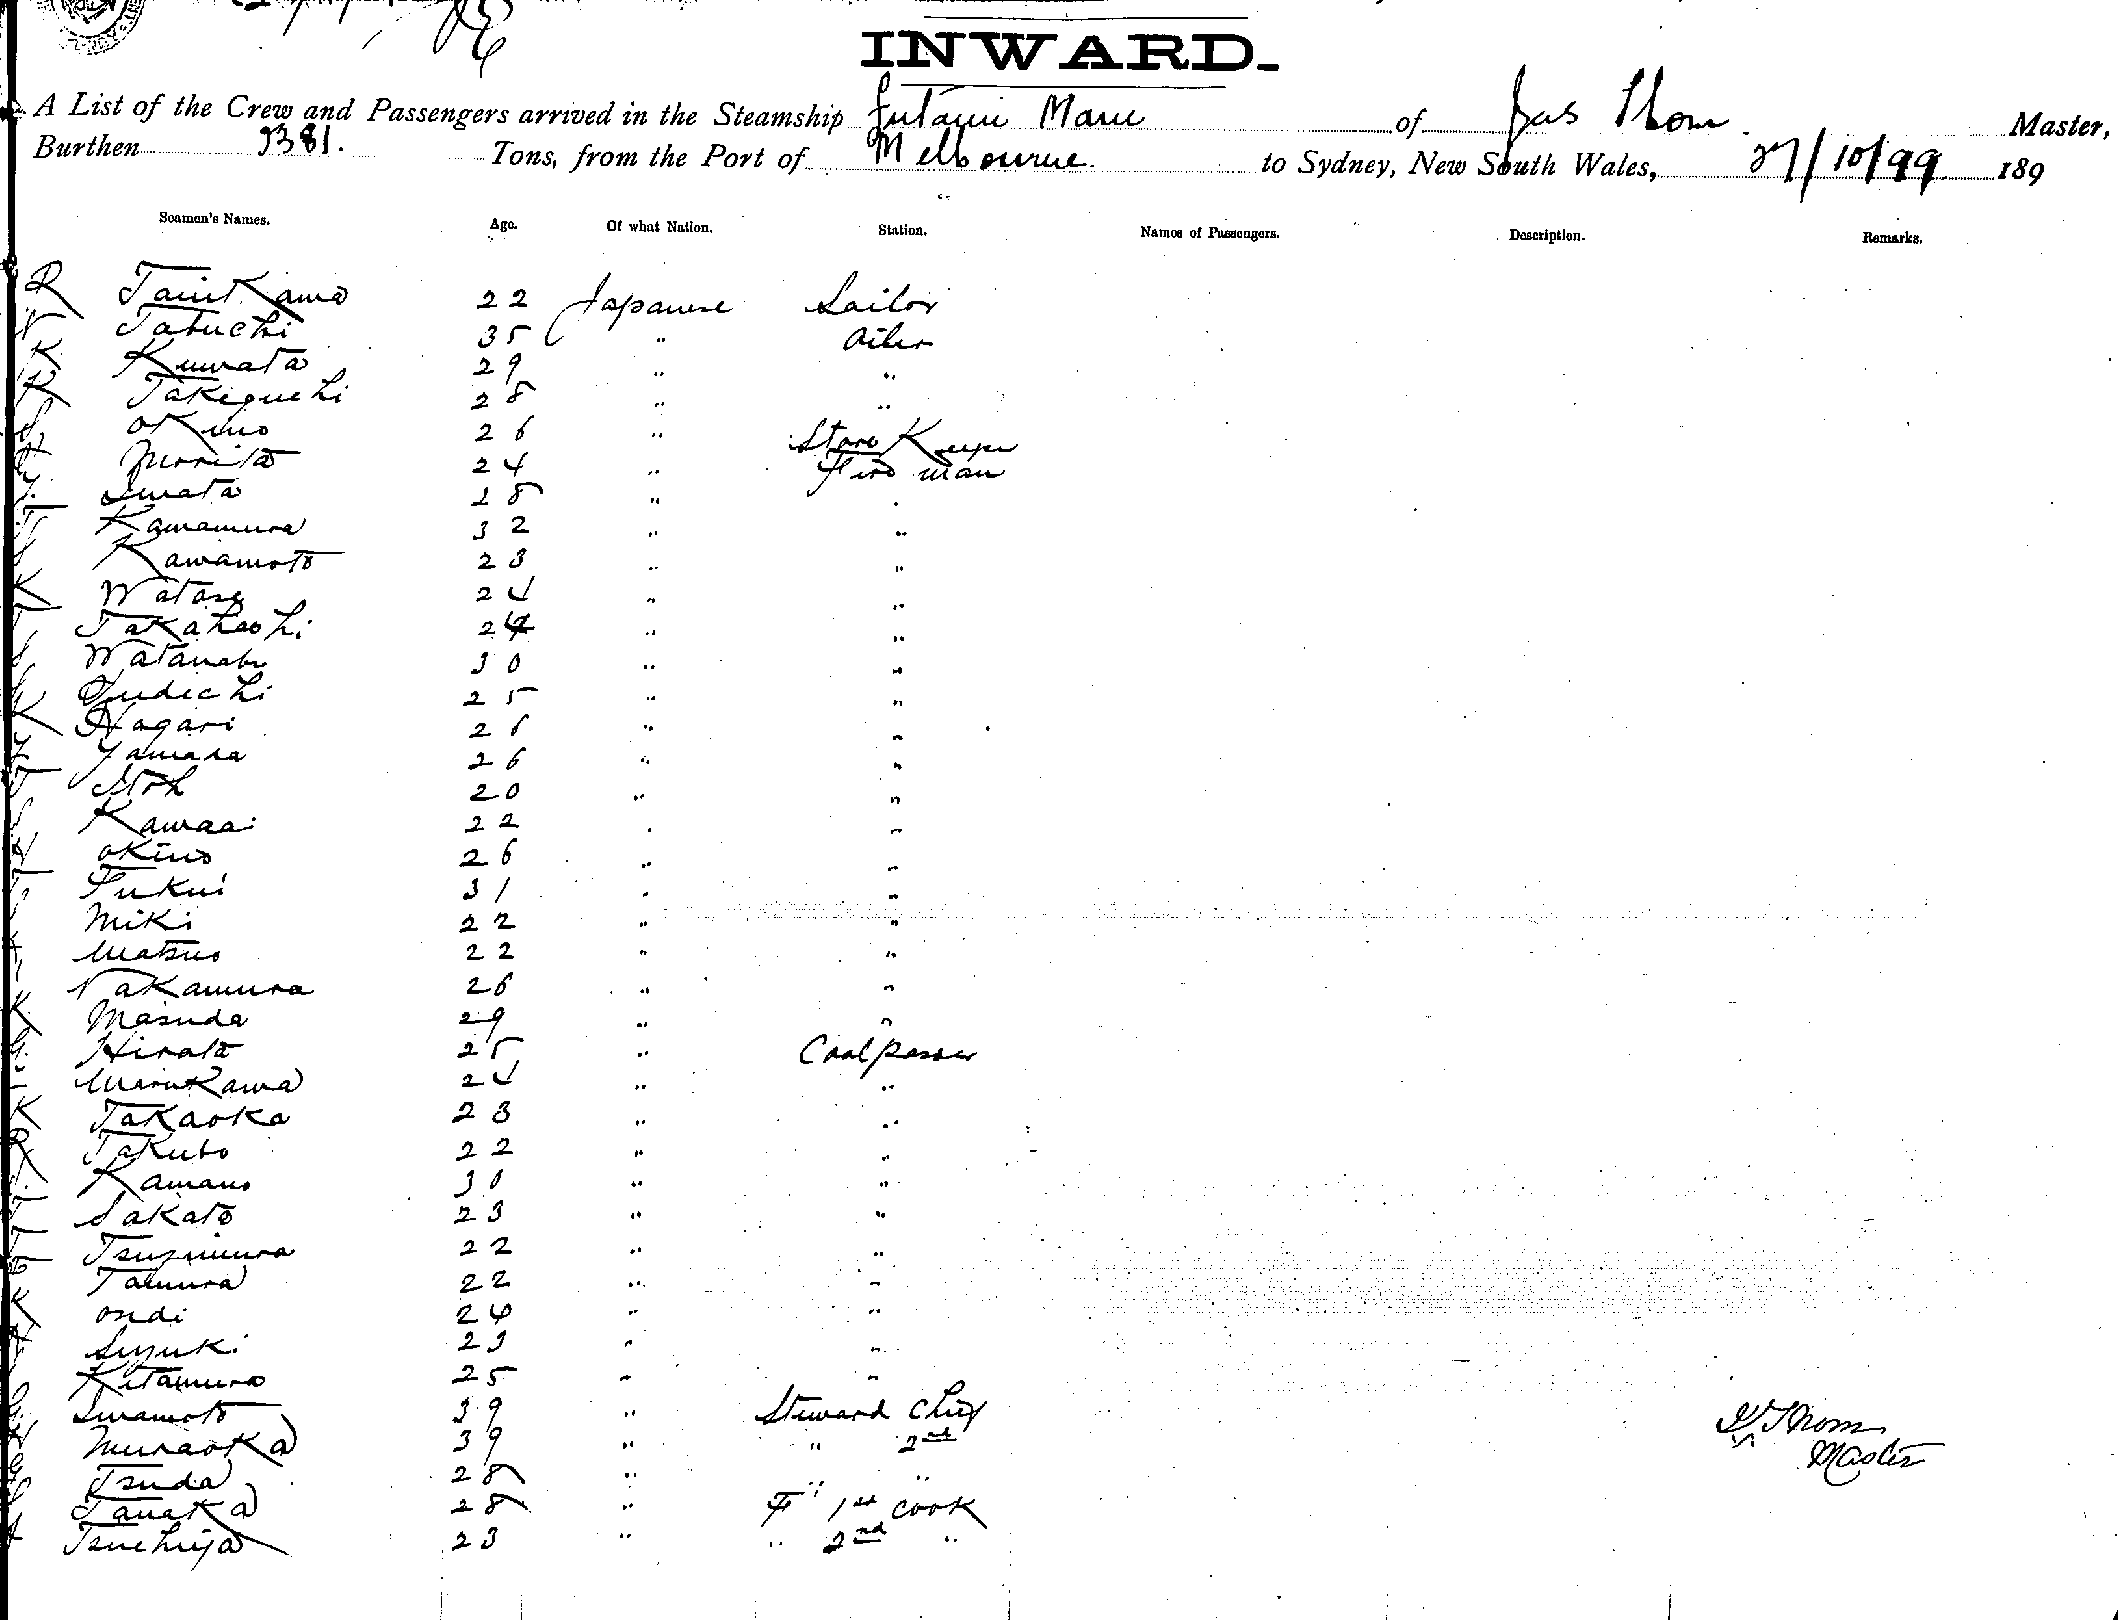 INWARD.
A List of the Crew and Passengers arrived in the Steamship Futami Maru of Jas Thom Master,
Burthen 3381. Tons, from the Port of Melbourne. to Sydney, New South Wales, 27/10/99 189
Seamen's Names. Age. Of what Nation. Station. Names of Passengers. Description. Remarks.
R Tanikawa 22 Japanese Sailor
N Tabuchi 35 " Oiler
K Kuwata 29 " "
K Takiguchi 28 " "
S Okino 26 " Store Keeper
Morita 24 " Fireman
Y. Iwata 28 "
T Kawamura 32 " "
Kawamoto 23 " "
K Watase 24 " "
T Takahashi 24 " "
S Watanabe 30 " "
25 " "
K Nagari 26 " "
Y Yamada 26 " "
T Itoh 20 " "
Kawaai 22 " "
Okino 26 " "
T Fukui 31 " "
Miki 22 " "
Matsuo 22 " "
Nakamura 26 " "
K Masuda 29 " "
G. Hirata 25 " Coalpasser
Marukawa 24 " "
K Takaoka 23 " "
R Takubo 22 " "
Kamano 30 " "
T Sakato 23 " "
T Tsujimura 22 " "
Tamura 22 " "
K Ondi 24 " "
Suzuki 23 " "
Kitamura 25 " "
G. Iwamoto 39 " Steward Chief Jas Thom
Muraoka 39 " " 2nd Master
G Tsuda 28 " " "
S Tanaka 28 " F" 1st Cook
Tsuchiya 23 " " 2nd "